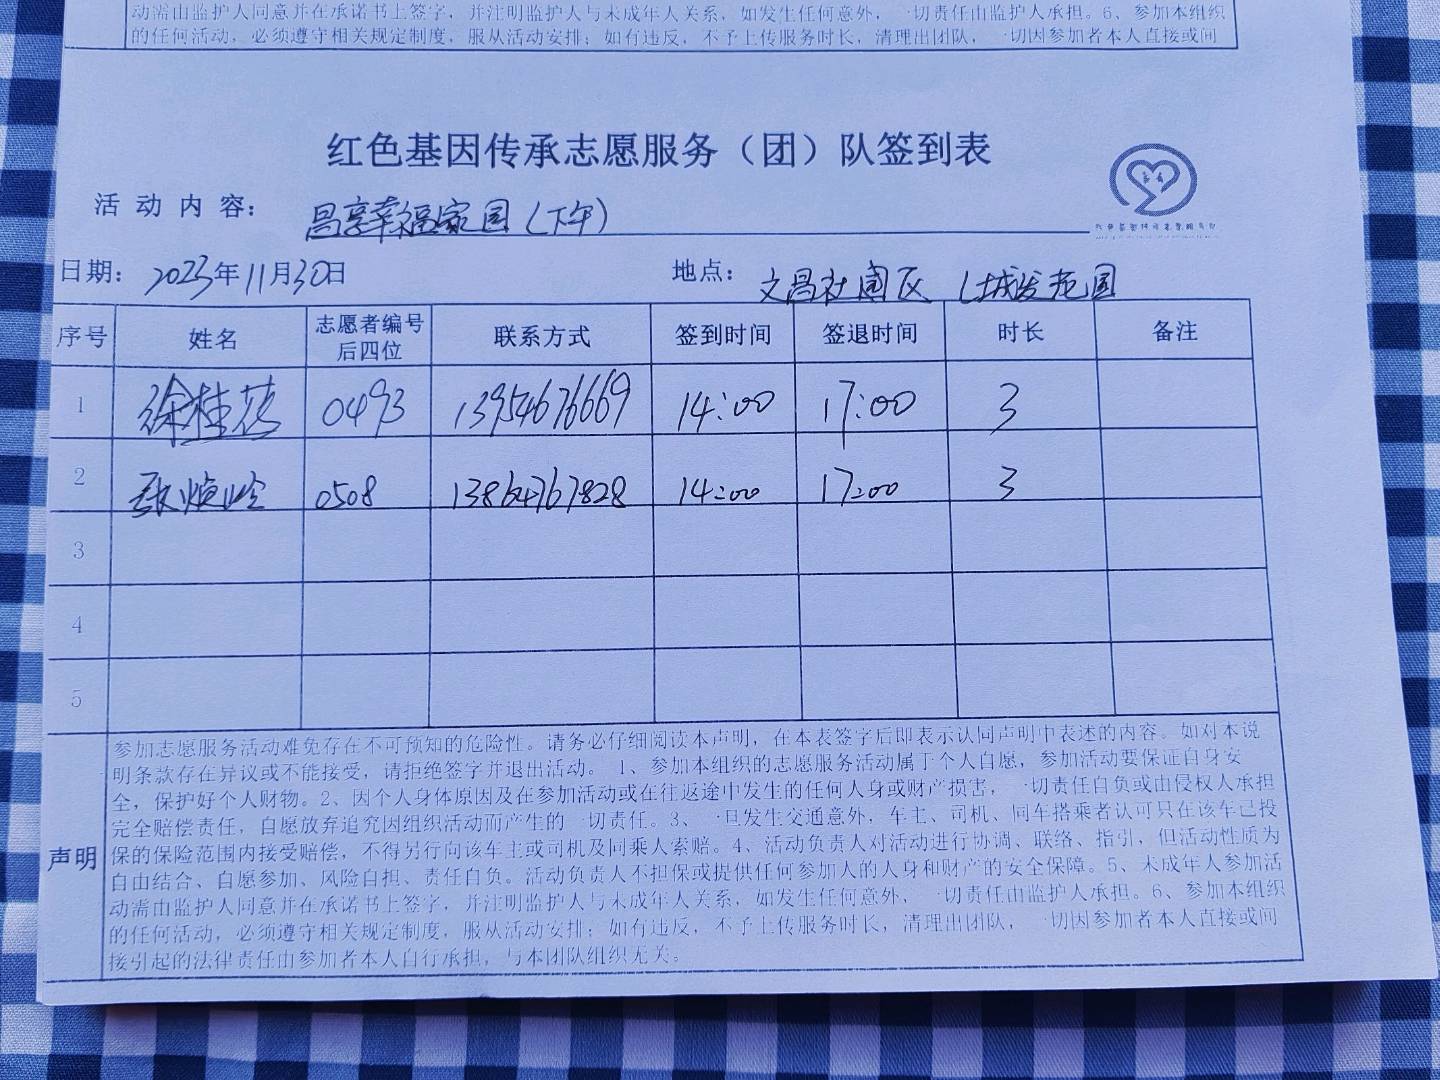 动需由监护人同意并在承诺书上签字，并注明监护人与未成年人关系，如发生任何意外，一切责任由监护人承担。6、参加本组织
的任何活动，必须遵守相关规定制度，服从活动安排；如有违反，不予上传服务时长，清理出团队，一切因参加者本人直接或间
红色基因传承志愿服务（团）队签到表
活动内容： 昌享幸福家园（下午）
日期： 2023年11月30日 地点： 文昌社区 城发范园
序号 姓名 志愿者编号后四位 联系方式 签到时间 签退时间 时长 备注
1 徐桂花 0493 13954676669 14:00 17:00 3
2 0508 13864767828 14:00 17:00 3
3
4
5
声明
参加志愿服务活动难免存在不可预知的危险性。请务必仔细阅读本声明，在本表签字后即表示认同声明中表述的内容。如对本说
明条款存在异议或不能接受，请拒绝签字并退出活动。 1、参加本组织的志愿服务活动属于个人自愿，参加活动要保证自身安
全，保护好个人财物。2、因个人身体原因及在参加活动或在往返途中发生的任何人身或财产损害，一切责任自负或由侵权人承担
完全赔偿责任，自愿放弃追究因组织活动而产生的一切责任。3、一旦发生交通意外，车主、司机、同车搭乘者认可只在该车已投
保的保险范围内接受赔偿，不得另行向该车主或司机及同乘人索赔。4、活动负责人对活动进行协调、联络、指引，但活动性质为
自由结合、自愿参加、风险自担、责任自负。活动负责人不担保或提供任何参加人的人身和财产的安全保障。5、未成年人参加活
动需由监护人同意并在承诺书上签字，并注明监护人与未成年人关系，如发生任何意外，一切责任由监护人承担。6、参加本组织
的任何活动，必须遵守相关规定制度，服从活动安排；如有违反，不予上传服务时长，清理出团队，一切因参加者本人直接或间
接引起的法律责任由参加者本人自行承担，与本团队组织无关。